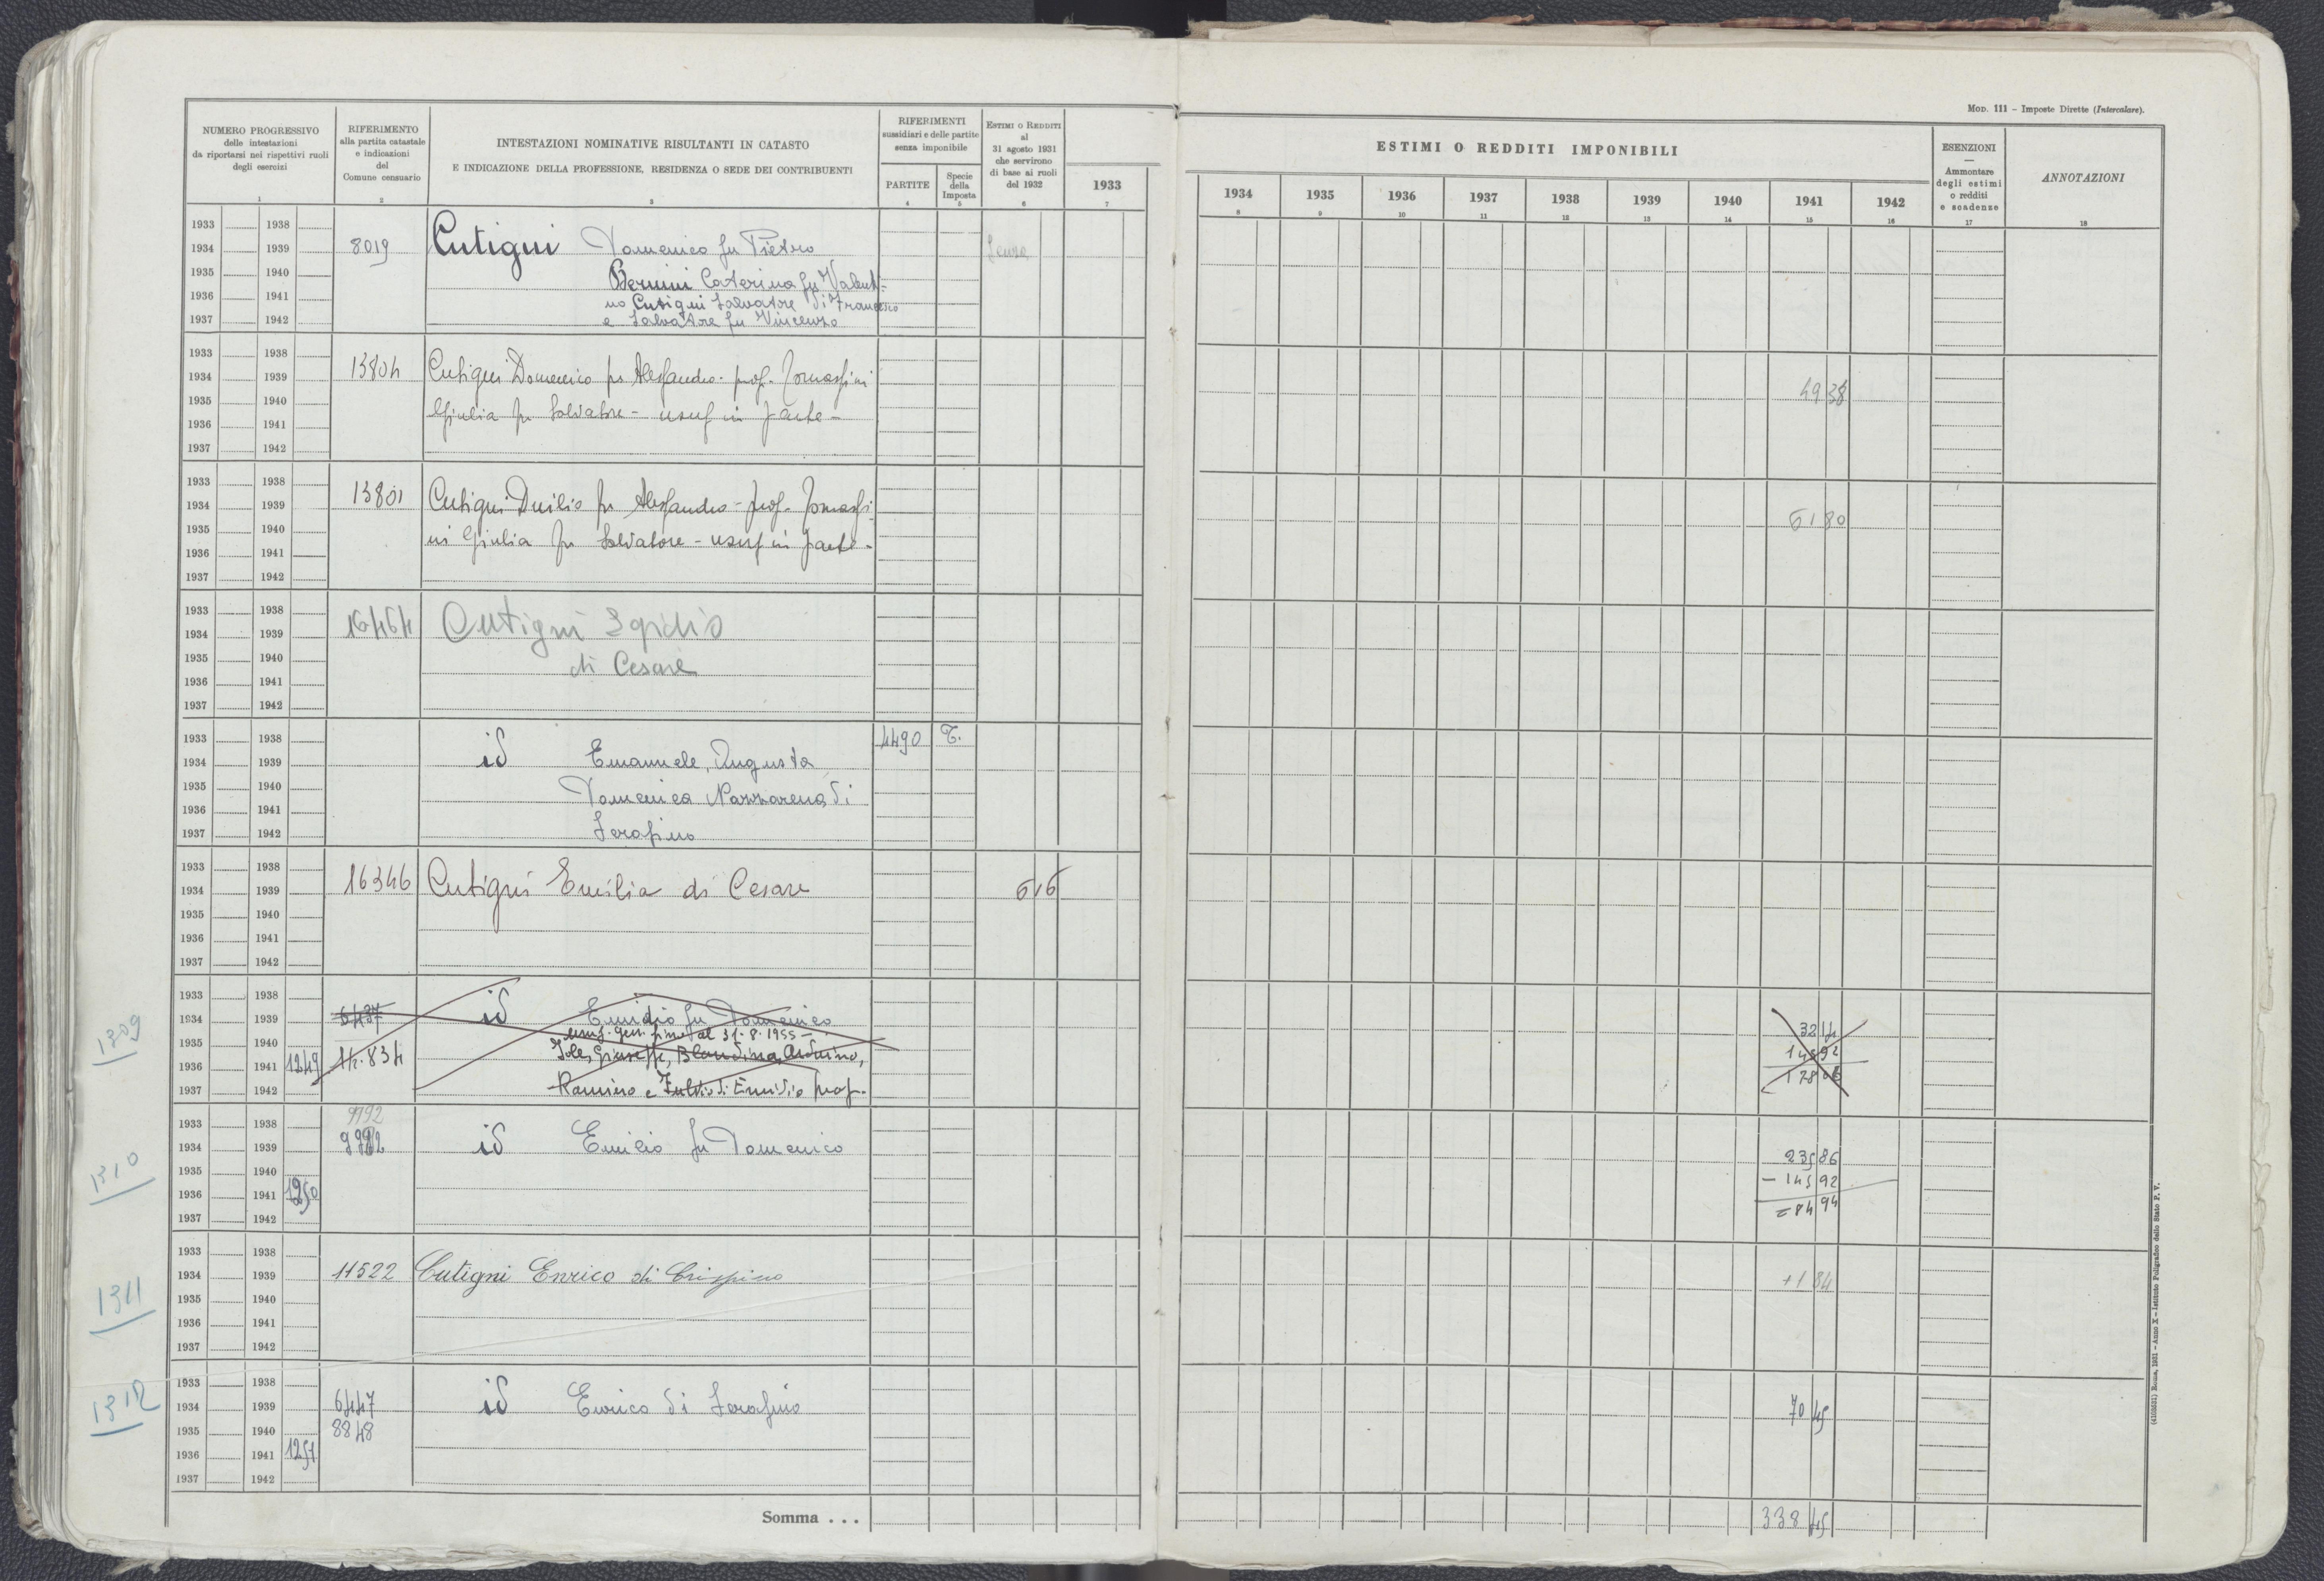 MOD. 111 – Imposte Dirette (Intercalare).
NUMERO PROGRESSIVO
delle intestazioni
da riportarsi nei rispettivi ruoli
degli esercizi
1
RIFERIMENTO
alla partita catastale
e indicazioni
del
Comune censuario
2
INTESTAZIONI NOMINATIVE RISULTANTI IN CATASTO
E INDICAZIONE DELLA PROFESSIONE, RESIDENZA O SEDE DEI CONTRIBUENTI
3
RIFERIMENTI
sussidiari e delle partite
senza imponibile
PARTITE
4
Specie
della
Imposta
5
ESTIMI O REDDITI
al
31 agosto 1931
che servirono
di base ai ruoli
del 1932
6
1933
7
ESTIMI O REDDITI IMPONIBILI
1934 1935 1936 1937 1938 1939 1940 1941 1942
8 9 10 11 12 13 14 15 16
ESENZIONI
—
Ammontare
degli estimi
o redditi
e scadenze
17
ANNOTAZIONI
18
1933 1938
1934 1939 8019 Cutigni Domenico fu Pietro
1935 1940 Bernini Caterina fu Valenti-
1936 1941 no Cutigni Salvatore di Francesco
1937 1942 e Salvatore fu Vincenzo
1933 1938
1934 1939 13804 Cutigni Domenico fu Alessandro - prop. Tomassini 49 38
1935 1940 Giulia fu Salvatore - usuf in parte -
1936 1941
1937 1942
1933 1938
1934 1939 13801 Cutigni Duilio fu Alessandro - prop. Tomassi 61 80
1935 1940 ni Giulia fu Salvatore - usuf in parte -
1936 1941
1937 1942
1933 1938
1934 1939 16464 Cutigni Egidio
1935 1940 di Cesare
1936 1941
1937 1942
1933 1938 4490 T.
1934 1939 id Emanuele, Augusta
1935 1940 Domenica Nazzarena di
1936 1941
1937 1942 Serafino
1933 1938
1934 1939 16346 Cutigni Emilia di Cesare 6 16
1935 1940
1936 1941
1937 1942
1933 1938
1309 1934 1939 6437 id Emidio fu Domenico 32 14
usuf. gen. fino al 31-8-1955 -
1935 1940 Iole, Giuseppe, Blandina, Arduino, 145 92
1936 1941 1249 834 178 06
1937 1942 Ramiro e Fulvio di Emidio prop.
1933 1938 9992
1310 1934 1939 id Emilio fu Domenico 230 86
1935 1940 - 145 92
1936 1941 1250 = 84 94
1937 1942
1933 1938
1311 1934 1939 11522 Cutigni Enrico di Crispino + 1 84
1935 1940
1936 1941
1937 1942
1933 1938
1312 1934 1939 6447 id Enrico di Serafino 70 45
1935 1940 8848
1936 1941 1251
1937 1942
Somma . . . 338 45
(4103531) Roma, 1931 – Anno X – Istituto Poligrafico dello Stato P. V.